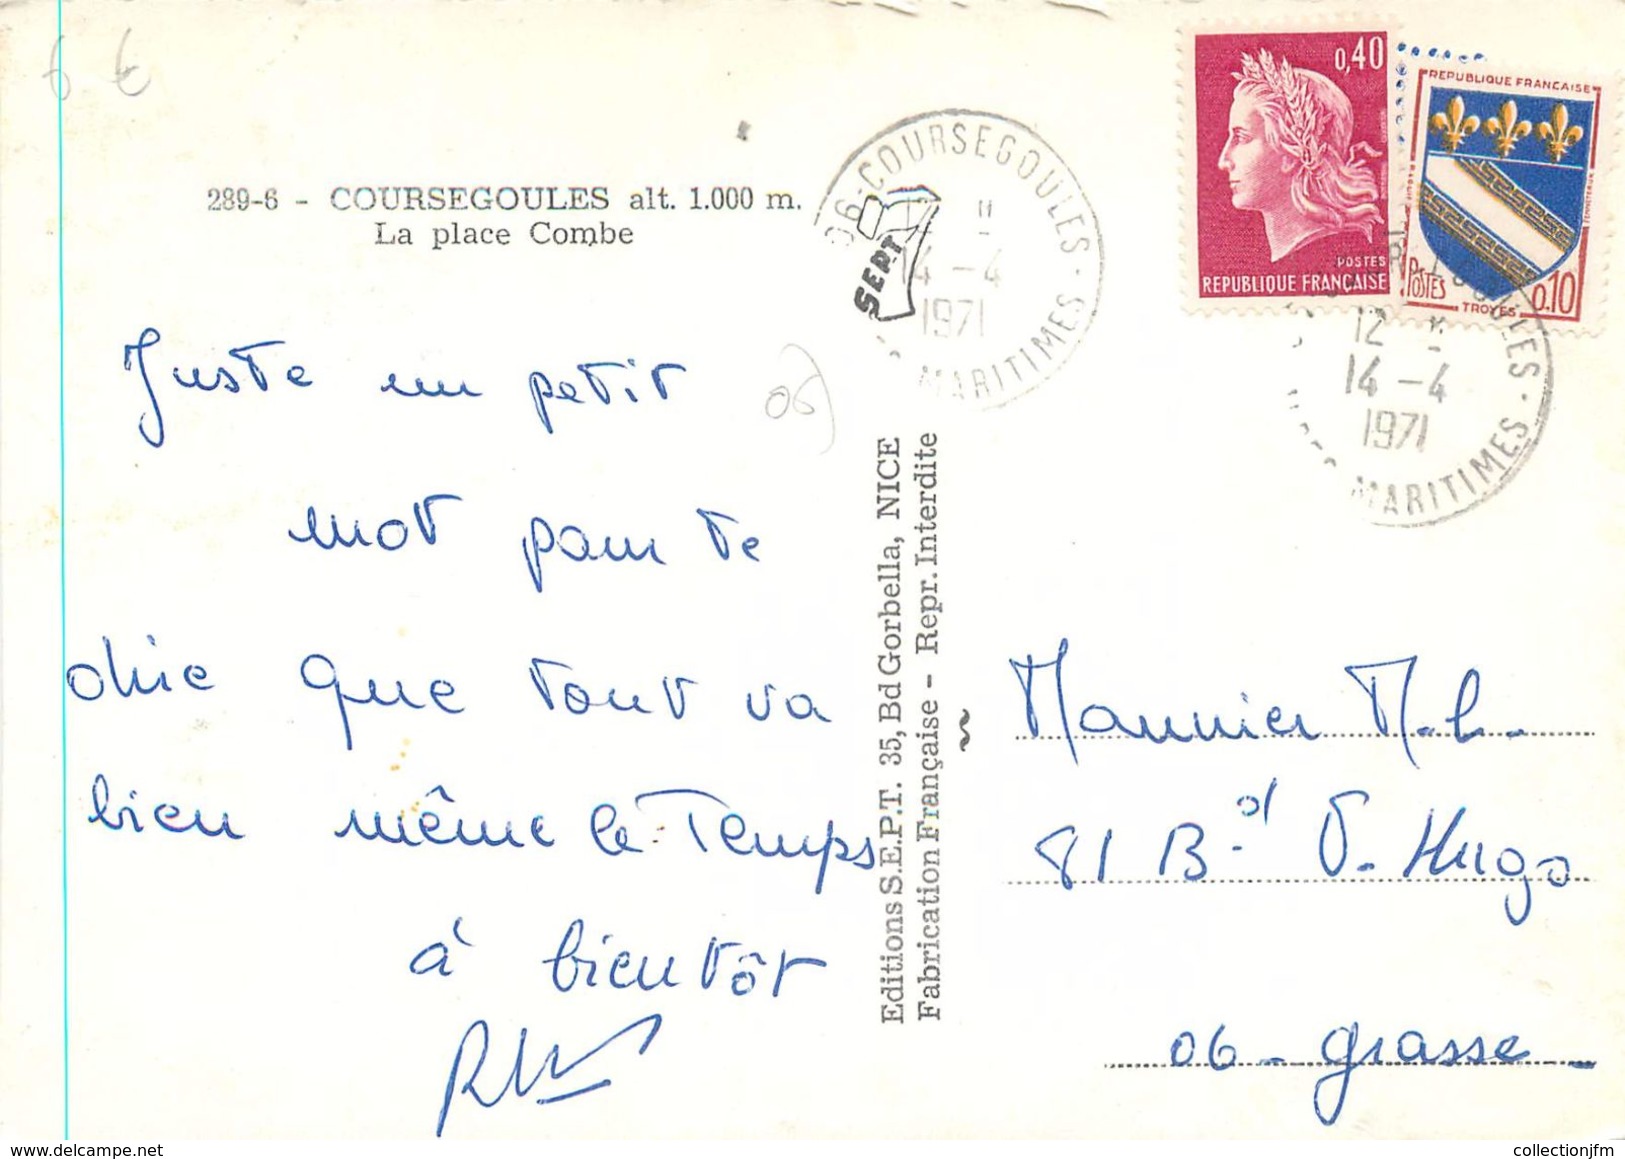 6 €
289-6 - COURSEGOULES alt. 1.000 m.
La place Combe
06-COURSEGOULES
14-4
1971
MARITIMES
SEPT
0,40
POSTES
REPUBLIQUE FRANÇAISE
REPUBLIQUE FRANCAISE
POSTES
TROYES
0.10
12
14-4
1971
MARITIMES
Juste un petit
mot pour te
dire que tout va
bien même le Temps
à bientôt
06
Editions S.E.P.T. 35, Bd Gorbella, NICE
Fabrication Française - Repr. Interdite
Maunier M.L.
81 Bd V. Hugo
06 - Grasse
collectionjfm